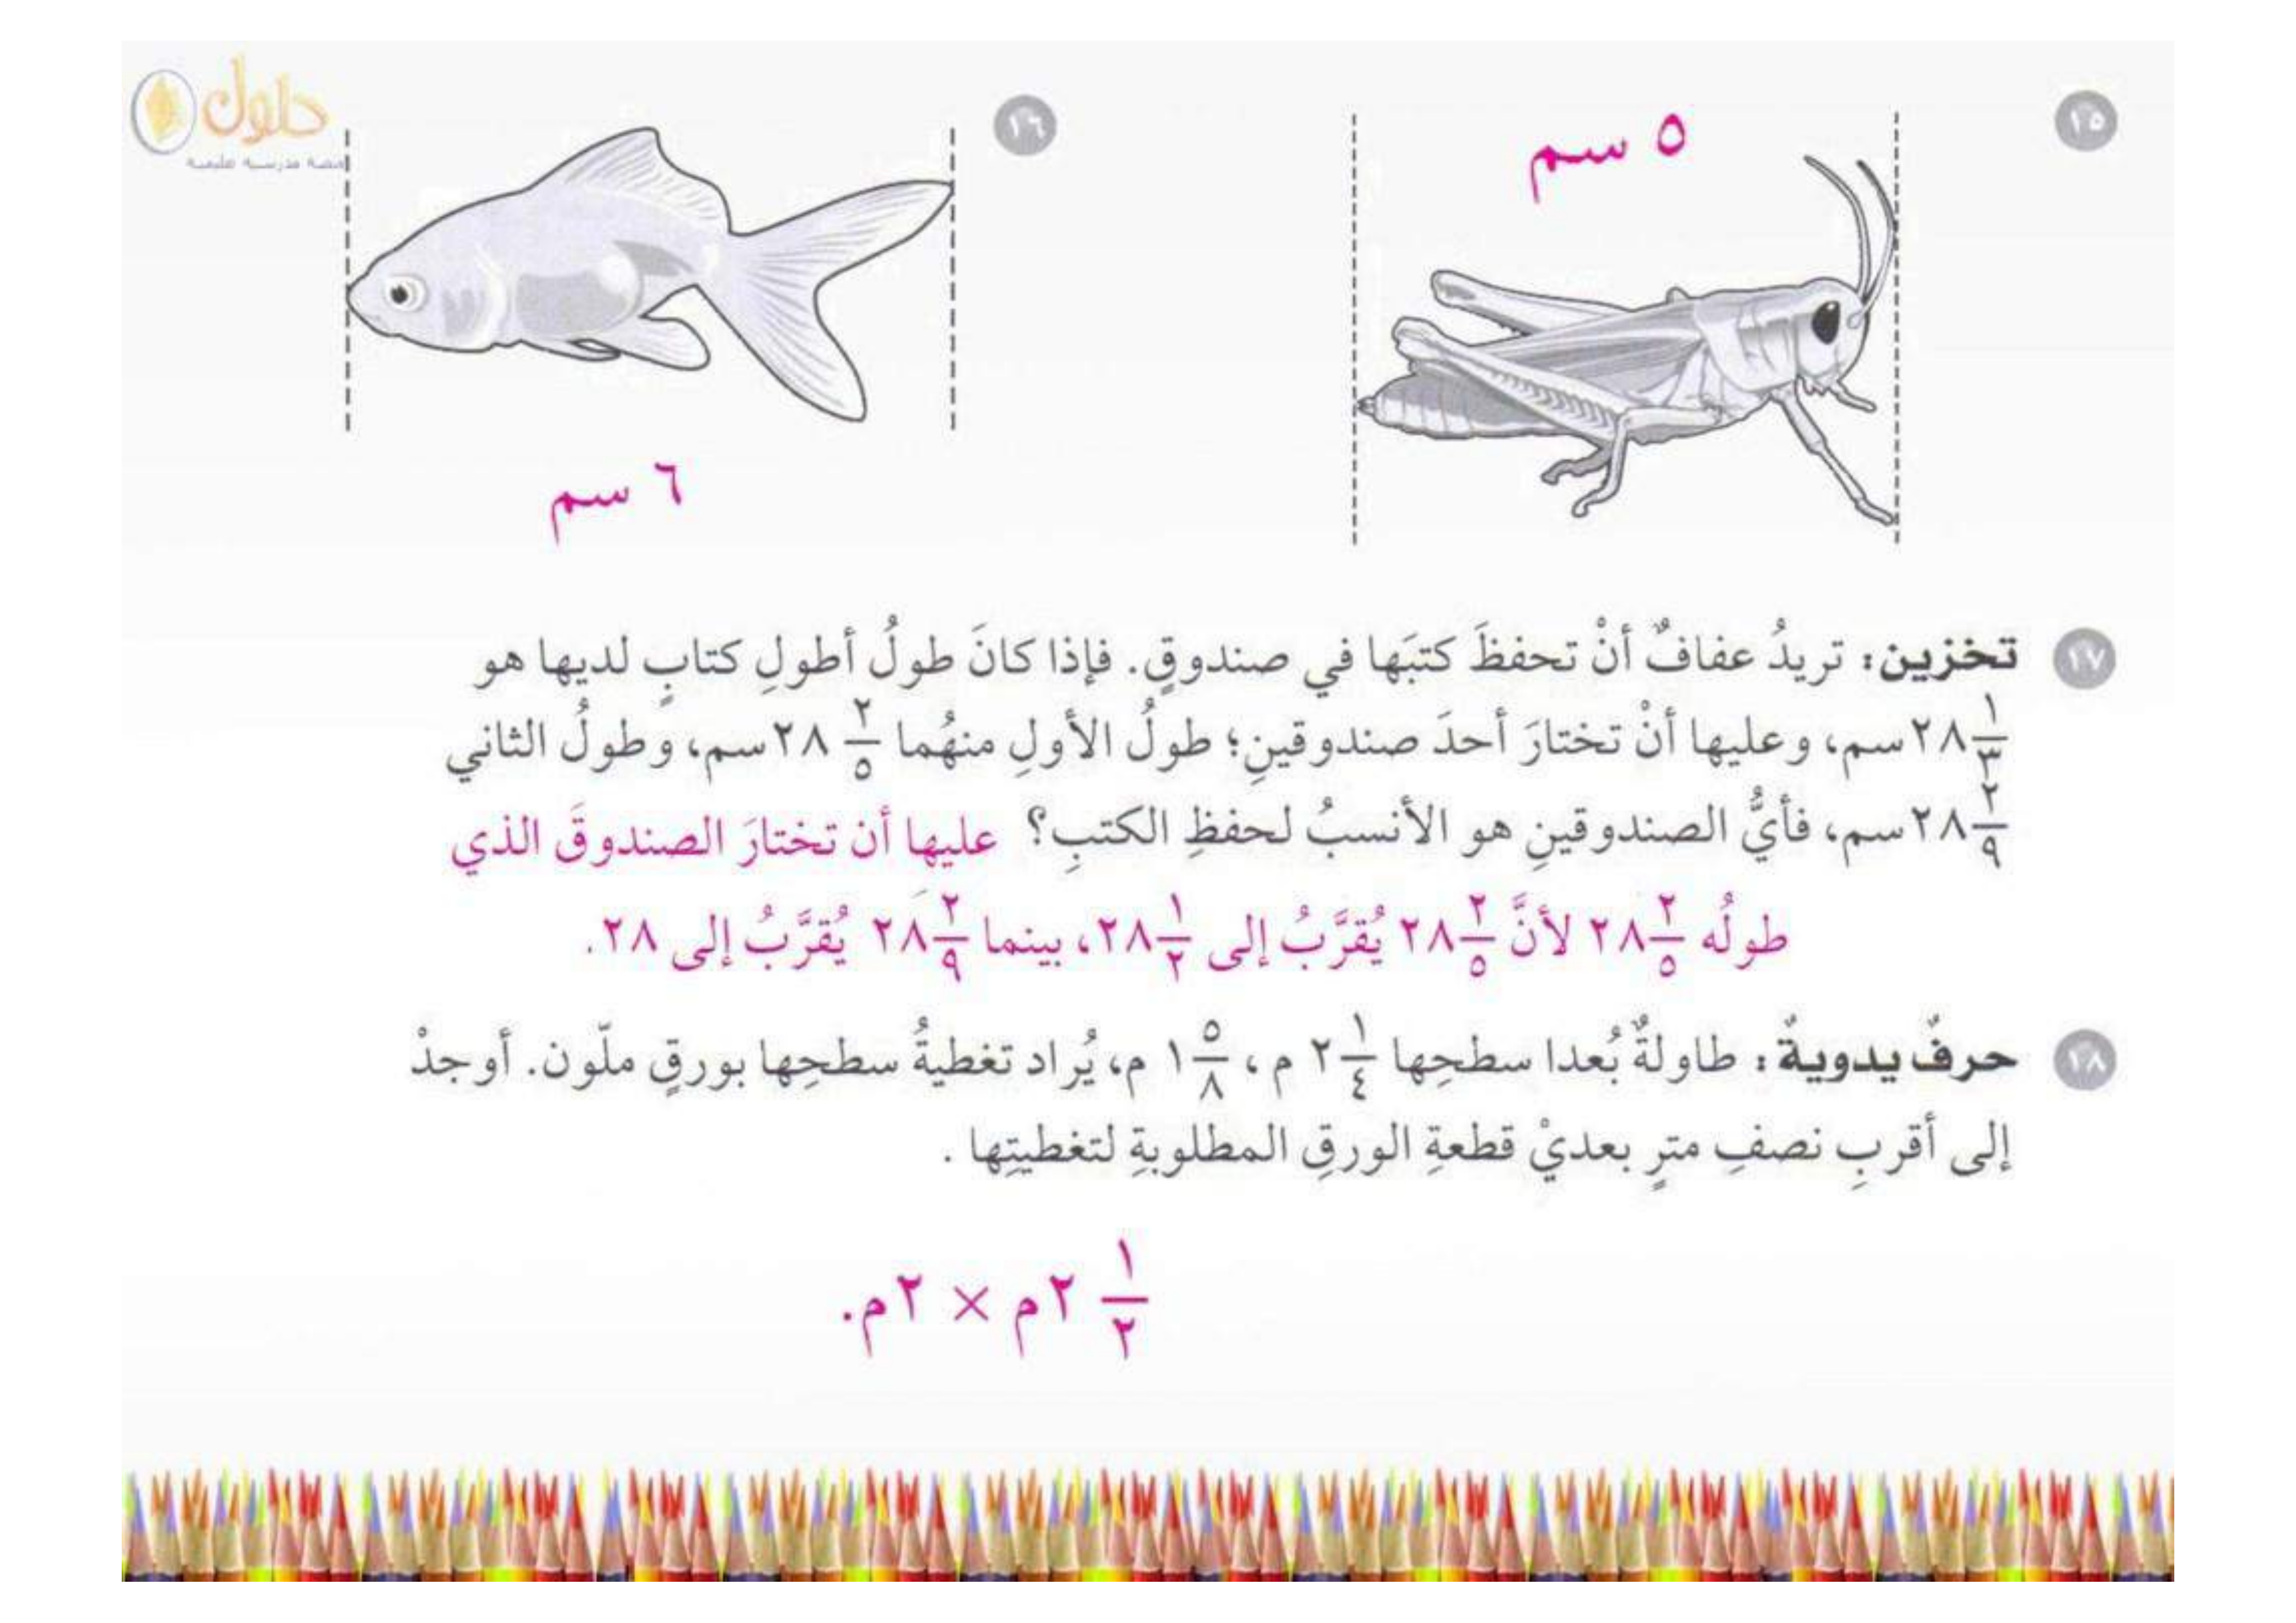 حلول
١٥
٥ سم
١٦
٦ سم
١٧ تخزين: تريدُ عفافٌ أنْ تحفظَ كتبَها في صندوقٍ. فإذا كانَ طولُ أطولِ كتابٍ لديها هو
٢٨ ١/٣ سم، وعليها أنْ تختارَ أحدَ صندوقينِ؛ طولُ الأولِ منهُما ٢٨ ٢/٥ سم، وطولُ الثاني
٢٨ ٢/٩ سم، فأيُّ الصندوقينِ هو الأنسبُ لحفظِ الكتبِ؟ عليها أن تختارَ الصندوقَ الذي
طولُه ٢٨ ٢/٥ لأنَّ ٢٨ ٢/٥ يُقرَّبُ إلى ٢٨ ١/٢، بينما ٢٨ ٢/٩ يُقرَّبُ إلى ٢٨.
١٨ حرفٌ يدويةٌ: طاولةٌ بُعدا سطحِها ٢ ١/٤ م، ١ ٥/٨ م، يُراد تغطيةُ سطحِها بورقٍ ملّون. أوجدْ
إلى أقربِ نصفِ مترٍ بعديْ قطعةِ الورقِ المطلوبةِ لتغطيتِها .
٢ ١/٢ م × ٢م.